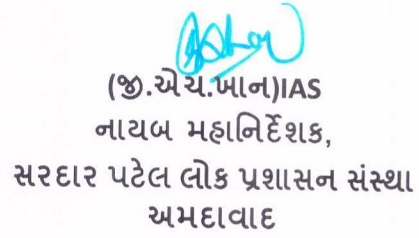 (જી.એચ.ખાન)IAS
નાયબ મહાનિર્દેશક,
સરદાર પટેલ લોક પ્રશાસન સંસ્થા
અમદાવાદ